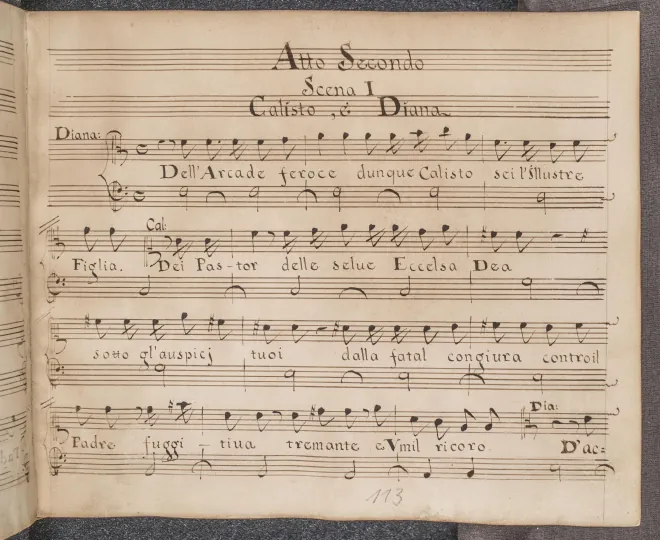 Atto Secondo
Scena I
Calisto, é Diana
Diana:
Dell'Arcade feroce dunque Calisto sei l'illustre
Cal:
Figlia. Dei Pas-tor delle selue Eccelsa Dea
sotto gl'auspicj tuoi dalla fatal congiura controil
Dia:
Padre fuggi-tiua tremante e Vmil ricoro. D'ac=
113